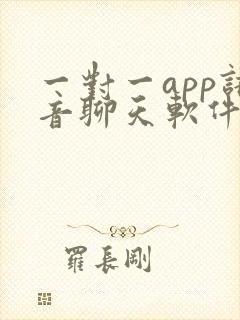 一對一app語
音聊天軟件
羅長剛